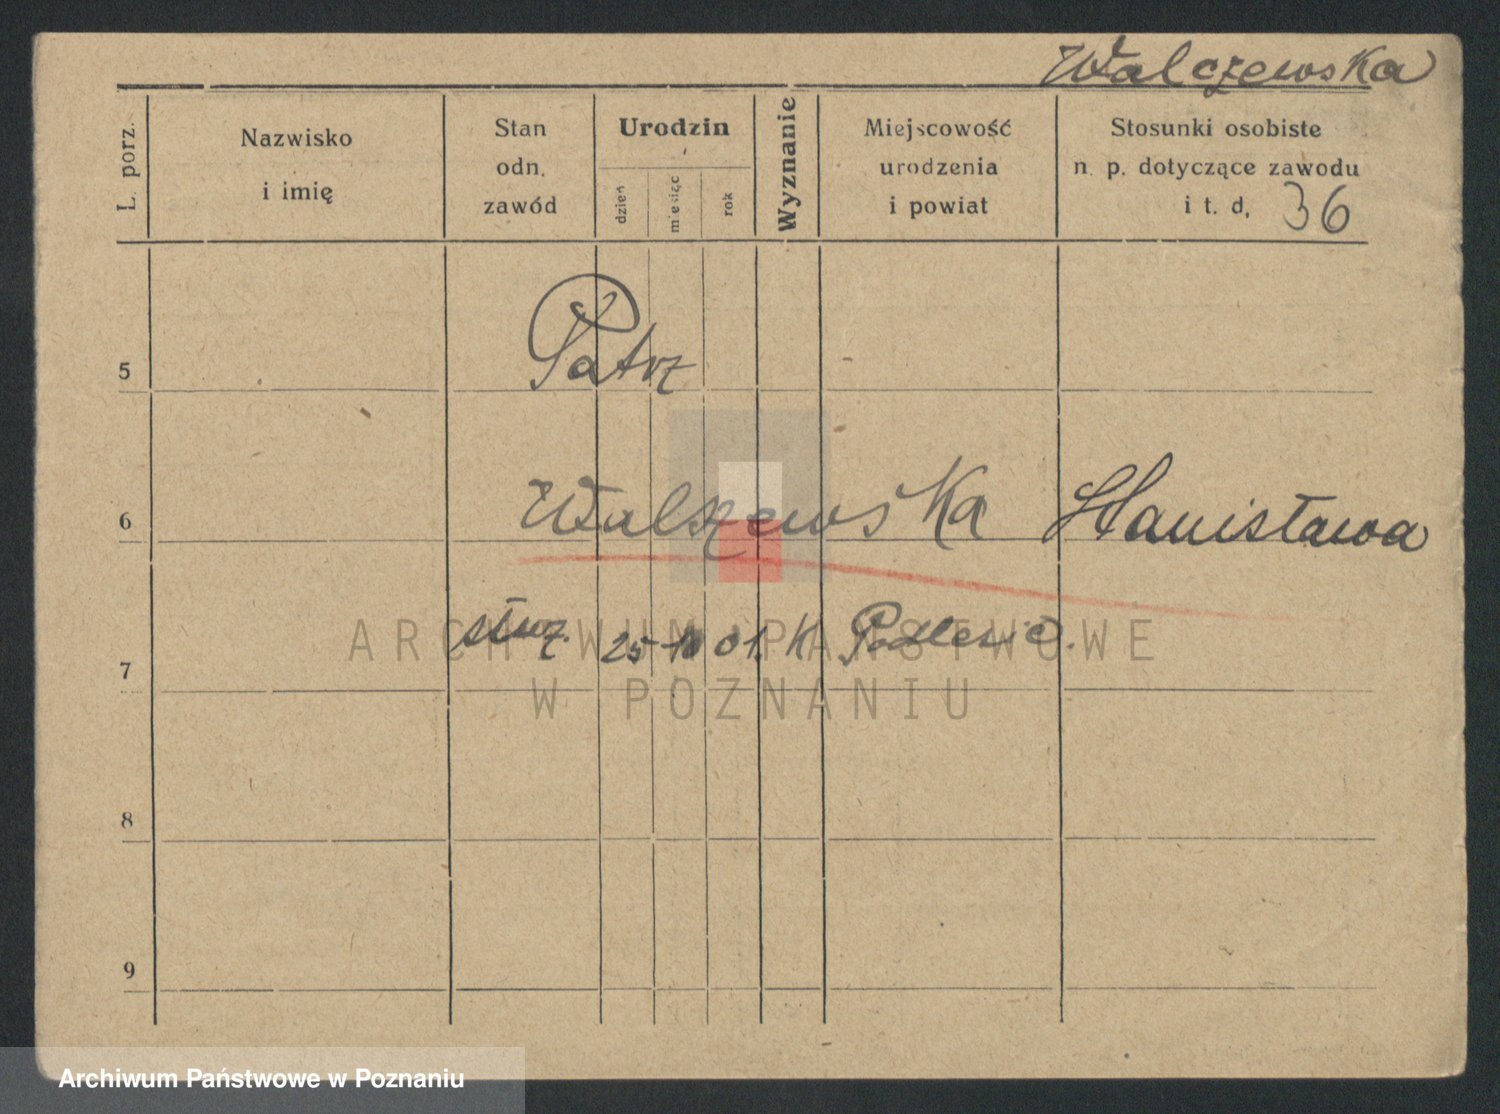 Walczewska
L. porz.
Nazwisko
i imię
Stan
odn.
zawód
Urodzin
dzień
miesiąc
rok
Wyznanie
Miejscowość
urodzenia
i powiat
Stosunki osobiste
n. p. dotyczące zawodu
i t. d. 36
5
Patrz
6
Walszewska Stanisława
służ. 25 10 01. K Podlesie.
7
8
9
ARCHIWUM PAŃSTWOWE
W POZNANIU
Archiwum Państwowe w Poznaniu